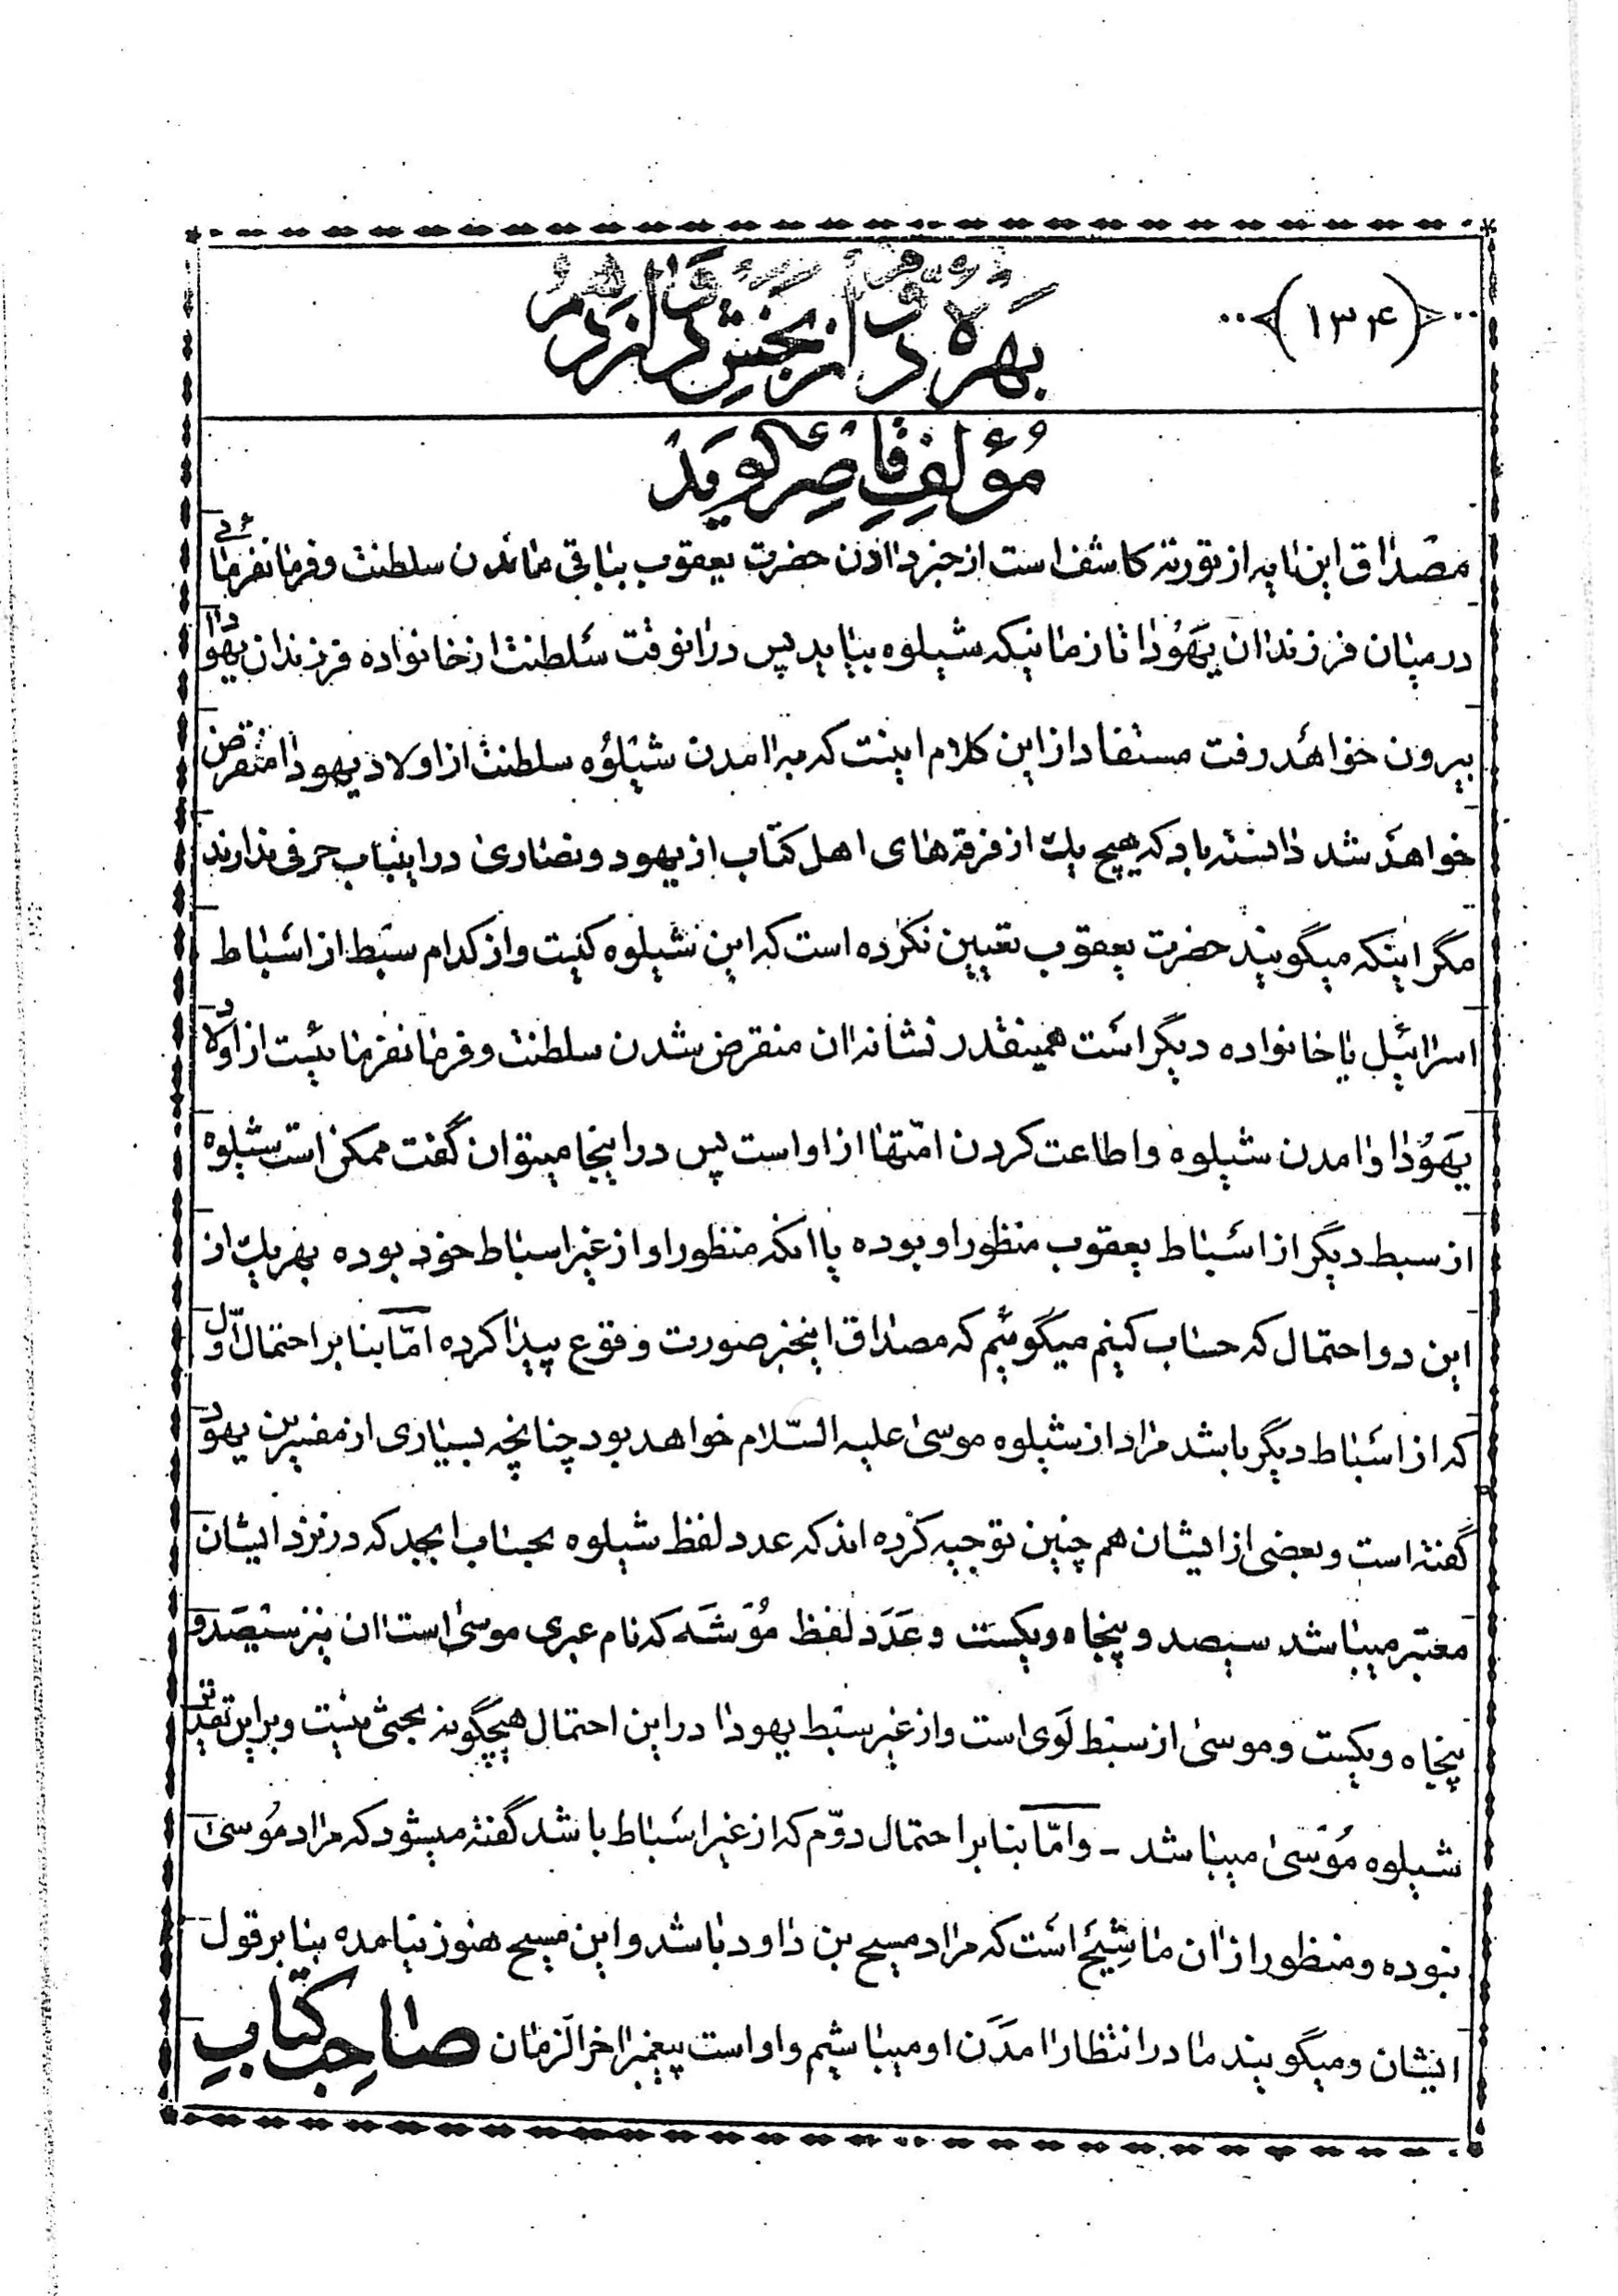 (۱۳۴)
بهره دوم از بخش دوازدهم
مؤلف قاصر گوید
مصداق این آیه از توریة کاشف است از خبر دادن حضرت یعقوب بباقی ماندن سلطنت و فرمانفرمائی
در میان فرزندان یَهُودا تا زمانیکه شیلوه بیاید پس در آنوقت سلطنت از خانواده فرزندان یهودا
بیرون خواهد رفت مستفاد از این کلام اینست که بر آمدن شیلوه سلطنت از اولاد یهودا منقرض
خواهد شد دانسته باد که هیچ یک از فرقه‌های اهل کتاب از یهود و نصاری در اینباب حرفی ندارند
مگر اینکه میگویند حضرت یعقوب تعیین نکرده است که این شیلوه کیست و از کدام سبط از اسباط
اسرائیل یا خانواده دیگر است همینقدر نشانه آن منقرض شدن سلطنت و فرمانفرمائیست از اولاد
یَهُودا و آمدن شیلوه و اطاعت کردن امّتها از او است پس در اینجا میتوان گفت ممکن است شیلوه
از سبط دیگر از اسباط یعقوب منظور او بوده یا آنکه منظور او از غیر اسباط خود بوده بهر یک از
این دو احتمال که حساب کنیم میگوئیم که مصداق اینخبر صورت وقوع پیدا کرده امّا بنا بر احتمال اوّل
که از اسباط دیگر باشد مراد از شیلوه موسی علیه السّلام خواهد بود چنانچه بسیاری از مفسرین یهود
گفته است و بعضی از ایشان هم چنین توجیه کرده اند که عدد لفظ شیلوه بحساب ابجد که در نزد ایشان
معتبر میباشد سیصد و پنجاه و یکست و عَدَد لفظ مُوشَه که نام عبری موسی است آن نیز سیصَد و
پنجاه و یکست و موسی از سبط لَوی است و از غیر سبط یهودا در این احتمال هیچگونه بحثی نیست و بر این تقدیر
شیلوه مُوسی میباشد - و امّا بنا بر احتمال دوّم که از غیر اسباط باشد گفته میشود که مراد مُوسی
نبوده و منظور از آن ماشِیَح است که مراد مسیح بن داود باشد و این مسیح هنوز نیامده بنا بر قول
ایشان و میگویند ما در انتظار آمدَن او میباشیم و او است پیغمبر آخر الزمان صاحب کتابِ